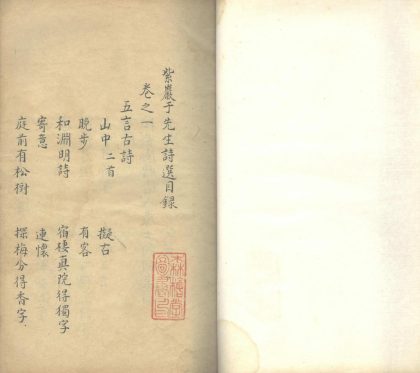 紫巖于先生詩選目錄
卷之一
五言古詩
山中二首 擬古
晚步 有客
和淵明詩 宿棲真院得獨字
寄意 連懷
庭前有松樹 探梅分得香字